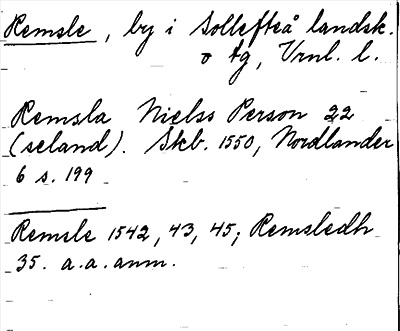 Remsle, by i Sollefteå landsk.
o tg, Vrnl. l.
Remsla Nielss Person 22
(seland). Skb. 1550, Nordlander
6 s. 199
Remsle 1542, 43, 45; Remsledh
35. a.a. anm.